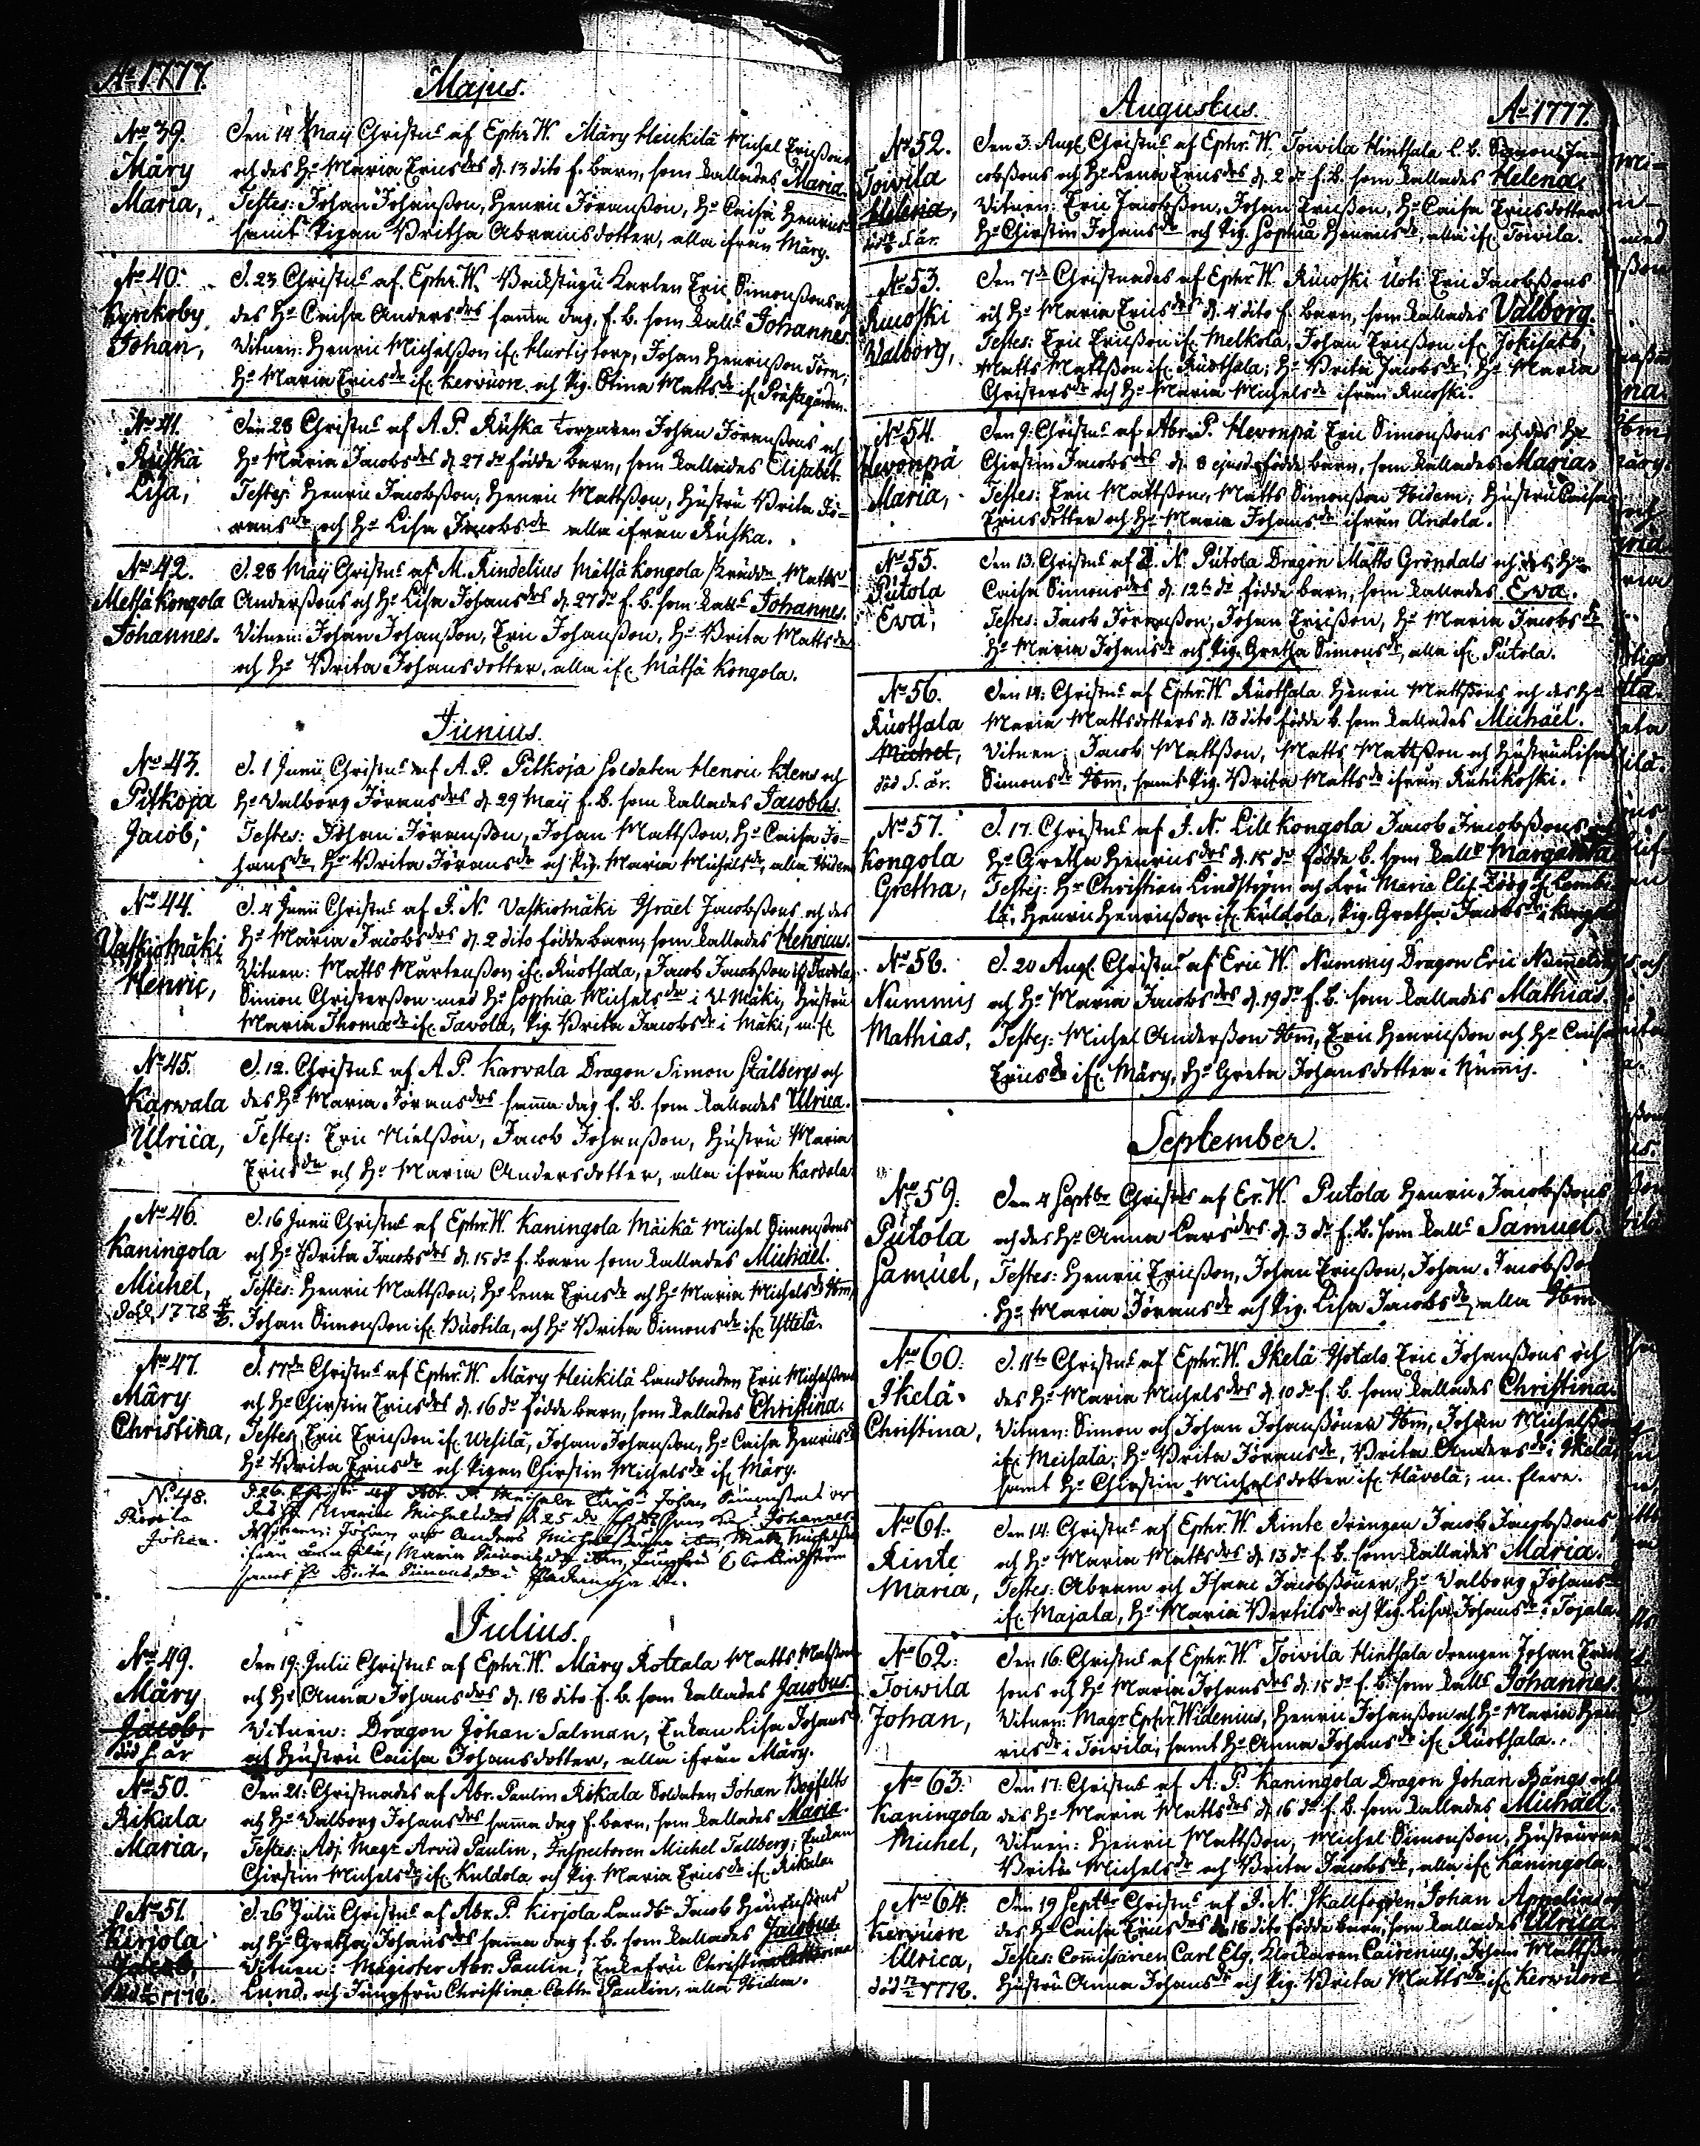 Ao 1777.
Majus.
No 39.
Märy
Maria,
Den 14 Maij Christns af Ephr. W. Märy Heickilä Michel Ericßons
och des Ho Maria Ericsdrs d. 13 dito f. barn, som kallades Maria.
Testes: Johan Johanßon, Henric Jöranßon, Ho Caisa Henricsdr
samt Pigan Britha Abramsdotter, alla ifrån Märy.
No 40.
Kyrckoby
Johan,
D. 23 Christns af Ephr. W. Backstugu Karlen Eric Simonßons och
des Ho Caisa Andersdrs samma dag, f. b. som kalls Johannes.
Vitnen: Henric Michelßon if. Hurtistorp, Johan Henricßon Törn,
Ho Maria Ericsdr if. Kervuore och Pig. Stina Mattsdr if. Prästegården.
No 41.
Ruska
Lisa,
Den 28 Christns af A. P. Ruska torparen Johan Jöranßons och
Ho Maria Jacobsdrs d. 27 do födde barn, som kallades Elisabet.
Testes: Henric Jacobßon, Henric Mattßon, Hustru Brita Jö-
ransdr och Ho Lisa Jacobsdr alla ifrån Ruska.
No 42.
Metsäkongola
Johannes.
D. 28 Maij Christns af M. Rindelius Mätsäkongola Skrädd. Matts
Anderßons och Ho Lisa Johansdrs d. 27 do f. b. som kalls Johannes.
Vitnen: Johan Johanßon, Eric Johanßon, Ho Brita Mattsdr
och Ho Brita Johansdotter, alla if. Mätsäkongola.
Junius.
No 43.
Pitkoja
Jacob,
D. 1 Junii Christns af A. P. Pitkoja Soldaten Henric Klens och
Ho Valborg Jöransdrs d. 29 Maij f. b. som kallades Jacobus.
Testes: Johan Jöranßon, Johan Mattßon, Ho Caisa Jo-
hansdr, Ho Brita Jöransdr och Pig. Maria Michelsdr, alla Ibidem
No 44.
Vaskiomäki
Henric,
D. 4 Junii Christns af J. N. Vaskiomäki Israel Jacobßons och des
Ho Maria Jacobsdrs d. 2 dito födde barn, som kallades Henricus.
Vitnen: Matts Mårtenßon if. Ruothala, Jacob Jacobßon if. Tavola
Simon Christerßon med Ho Sophia Michelsdr i V. Mäki, Hustru
Maria Thomædr if. Tavola, Pig. Brita Jacobsdr i Mäki, m. fl.
No 45.
Karwala
Ulrica,
D. 12. Christns af A. P. Karvala Dragon Simon Stålbergs och
des Ho Maria Jöransdrs samma dag f. b. som kallades Ulrica.
Testes: Eric Nielßon, Jacob Johanßon, Hustru Maria
Ericsdr och Ho Maria Andersdotter, alla ifrån Karvola
No 46.
Kaningola
Michel,
död 1778
D. 16 Junii Christns af Ephr. W. Kaningola Mäikä Michel Simonßons
och Ho Brita Jacobsdrs d. 15 do f. barn som kallades Michael.
Testes: Henric Mattßon, Ho Lena Ericsdr och Ho Maria Michelsdr Ibm,
Johan Simonßon if. Buotila, och Ho Brita Simonsdr if. Yttelä.
No 47.
Märy
Christina,
D. 17de Christns af Ephr. W. Märy Heickilä Landbonden Eric Michelßons
och Ho Chirstin Ericsdrs d. 16 do födde barn, som kallades Christina.
Testes, Eric Ericßon if. Uesilä, Johan Johanßon, Ho Caisa Henricsdr
Ho Brita Ericsdr och Pigan Chirstin Michelsdr if. Märy.
No 48.
Johan.
D. 26 Christ. af Abr. P. Johan Simonßons och
des H. Maria Michelsdrs d. 25 do Johannes
Vitnen: Johan och Anders Michelßöner ibm, Matts Michelßon
Maria Simonsdr ibm, Jungfru C. Lindström
samt Ho Brita Simonsdr
Julius.
No 49.
Märy
Jacob.
död s. år
Den 19: Julii Christns af Ephr. W. Märy Rottala Matts Matßons
och Ho Anna Johansdrs d. 18 dito f. b. som kallades Jacobus.
Vitnen: Dragon Johan Salman, Enkan Lisa Johansdr
och Hustru Caisa Johansdotter, alla ifrån Märy.
No 50.
Rikala
Maria,
Den 21: Christnades af Abr. Paulin Rikala Soldaten Johan Bogfelts
och Ho Valborg Johansdrs samma dag f. barn, som kallades Maria.
Testes: Adj. Magr Arvid Paulin, Inspectoren Michel Tallberg, Enkan
Chirstin Michelsdr if. Kuldola och Pig. Maria Ericsdr if. Rikala.
No 51.
Kirjola
Jacob,
död 1778.
D. 26 Julii Christns af Abr. P. Kirjola Landb. Jacob Henricßons
och Ho Gretha Johansdrs samma dag f. b. som kallades Jacobus.
Vitnen: Magister Abr. Paulin, Enkefru Christina Catharina
Lund, och Jungfru Christina Cath. Paulin, alla Ibidem.
Augustus.
Ao 1777.
No 52.
Toivila
Helena,
död s. år.
Den 3. Aug. Christns af Ephr. W. Toivila Hinthala l. b. Simon Ja-
cobßons och Ho Lena Ericsdrs d. 2 do f. b. som kallades Helena.
Vitnen: Eric Jacobßon, Johan Ericßon, Ho Caisa Ericsdotter
Ho Chirstin Johansdr och Pig. Sophia Henricsdr, alla if. Toivila.
No 53.
Ruoski
Walborg,
Den 7de Christnades af Ephr. W. Ruoski Uoti Eric Jacobßons
och Ho Maria Ericsdrs d. 4 dito f. barn, som kallades Valborg.
Testes: Eric Ericßon if. Melkola, Johan Ericßon if. Jokisato,
Matts Mattßon if. Ruothala, Ho Brita Jacobsdr, Ho Maria
Christersdr och Ho Maria Michelsdr ifrån Ruoski.
No 54.
Hevonpä
Maria,
Den 9: Christns af Abr. P. Hevonpä Eric Simonßons och des Ho
Chirstin Jacobsdrs d. 8 ejusd. födde barn, som kallades Maria.
Testes: Eric Mattßon, Matts Simonßon Ibidem; Hustru Caisa
Ericsdotter och Ho Maria Johansdr ifrån Andola.
No 55.
Putola
Eva,
Den 13. Christns af J. N. Putola Dragon Matts Gröndals och des Ho
Caisa Simonsdrs d. 12te do födde barn, som kallades Ewa.
Testes: Jacob Jöranßon, Johan Ericßon, Ho Maria Jacobsdr
Ho Maria Johansdr och Pig. Gretha Simonsdr, alla if. Putola.
No 56.
Ruothala
Michel,
död s. år.
Den 14: Christns af Ephr. W. Ruothala Henric Mattßons och des Ho
Maria Mattsdotters d. 13 dito födde b. som kallades Michael.
Vitnen: Jacob Mattßon, Matts Mattßon och Hustru Lisa
Simonsdr Ibm, samt Pig. Brita Mattsdr ifrån Kuhikoski.
No 57.
Kongola
Gretha,
D. 17. Christns af J. N. Lill Kongola Jacob Jacobßons
Ho Gretha Henricsdrs d. 15 do födde b. som kalls Margareta
Testes: Hr Christian Lindström och Fru Maria Elis. if. Lembi-
lä, Henric Henricßon if. Kuldola, Pig. Gretha Jacobsdr i Kongola
No 58.
Nummis
Mathias,
D. 20 Aug. Christns af Eric W. Nummis Dragon Eric Nummelins
och Ho Maria Jacobsdrs d. 19 do f. b. som kallades Mathias.
Testes: Michel Anderßon Ibm, Eric Henricßon och Ho Caisa
Ericsdr if. Märy, Ho Greta Johansdotter i Numis.
September.
No 59.
Putola
Samuel,
Den 4 Septbr Christns af Er. W. Putola Henric Jacobßons
och des Ho Anna Larsdrs d. 3 do f. b. som kalls Samuel.
Testes: Henric Ericßon, Johan Ericßon, Johan Jacobßon
Ho Maria Jöransdr och Pig. Lisa Jacobsdr, alla Ibm
No 60.
Ikelä
Christina,
D. 11te Christns af Ephr. W. Ikelä Isotalo Eric Johanßons och
des Ho Maria Michelsdrs d. 10 do f. b. som kallades Christina.
Vitnen: Simon och Johan Johanßöner Ibm, Johan Michelßon
if. Meisala, Ho Brita Jöransdr, Brita Andersdr i Ikelä
samt Ho Chirstin Michelsdotter if. Hävelä, m. flere.
No 61.
Rinte
Maria,
Den 14: Christns af Ephr. W. Rinte drängen Jacob Jacobßons
och Ho Maria Mattsdrs d. 13 do f. b. som kallades Maria.
Testes: Abram och Isaac Jacobßöner, Ho Valborg Johansdr
if. Majala, Ho Maria Bertilsdr och Pig. Lisa Johansdr i Tojala.
No 62:
Toiwila
Johan,
Den 16. Christns af Ephr. W. Toivila Hinthala drengen Johan Eric-
sons och Ho Maria Johansdrs d. 15 do f. b. som kalls Johannes.
Vitnen: Magr Ephr. Widenius, Henric Johanßon och Ho Maria Hen-
ricsdr i Toivila, samt Ho Anna Johansdr if. Ruothala.
No 63.
Kaningola
Michel,
Den 17: Christns af A: P. Kaningola Dragon Johan Bångs och
des Ho Maria Mattsdrs d. 16 do f. b. som kallades Michael.
Vitnen: Henric Mattßon, Michel Simonßon, Hustrurna
Brita Michelsdr och Brita Jacobsdr, alla if. Kaningola.
No 64.
Kervuore
Ulrica,
död 1778.
Den 19 Septbr Christns af J. N. Skallfogden Johan Appelins och
des Ho Caisa Ericsdrs d. 18 dito födde barn, som kallades Ulrica.
Testes: Commissarien Carl Elg, Klockaren Cairenius, Johan Mattßon
Hustru Anna Johansdr och Pig. Brita Mattsdr if. Kervuore